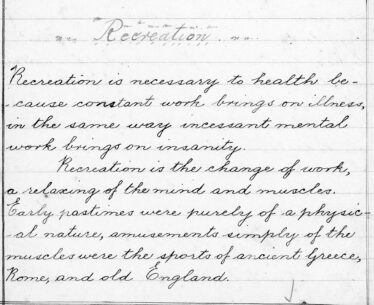 Recreation
Recreation is necessary to health be-
-cause constant work brings on illness,
in the same way incessant mental
work brings on insanity.
Recreation is the change of work,
a relaxing of the mind and muscles.
Early pastimes were purely of a physic-
-al nature, amusements simply of the
muscles were the sports of ancient Greece,
Rome, and old England.